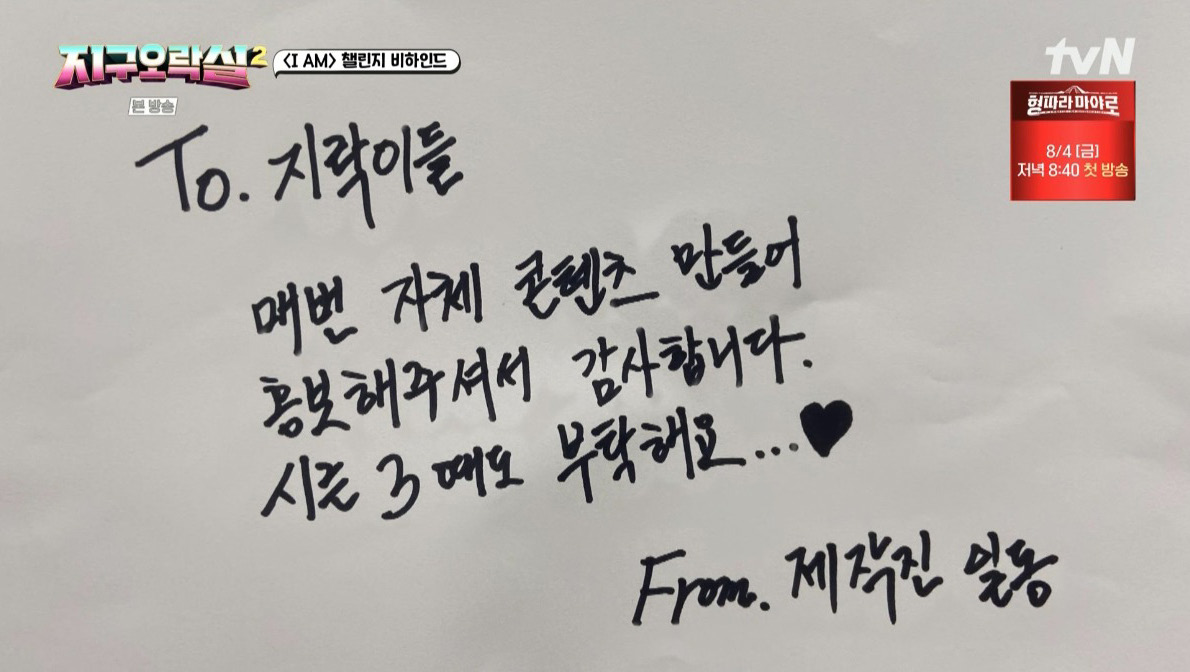 지구오락실2
<I AM> 챌린지 비하인드
본 방송
tvN
형따라 마야로
8/4 [금]
저녁 8:40 첫 방송
To. 지락이들
매번 자체 콘텐츠 만들어
홍보해주셔서 감사합니다.
시즌 3 때도 부탁해요...♥
From. 제작진 일동